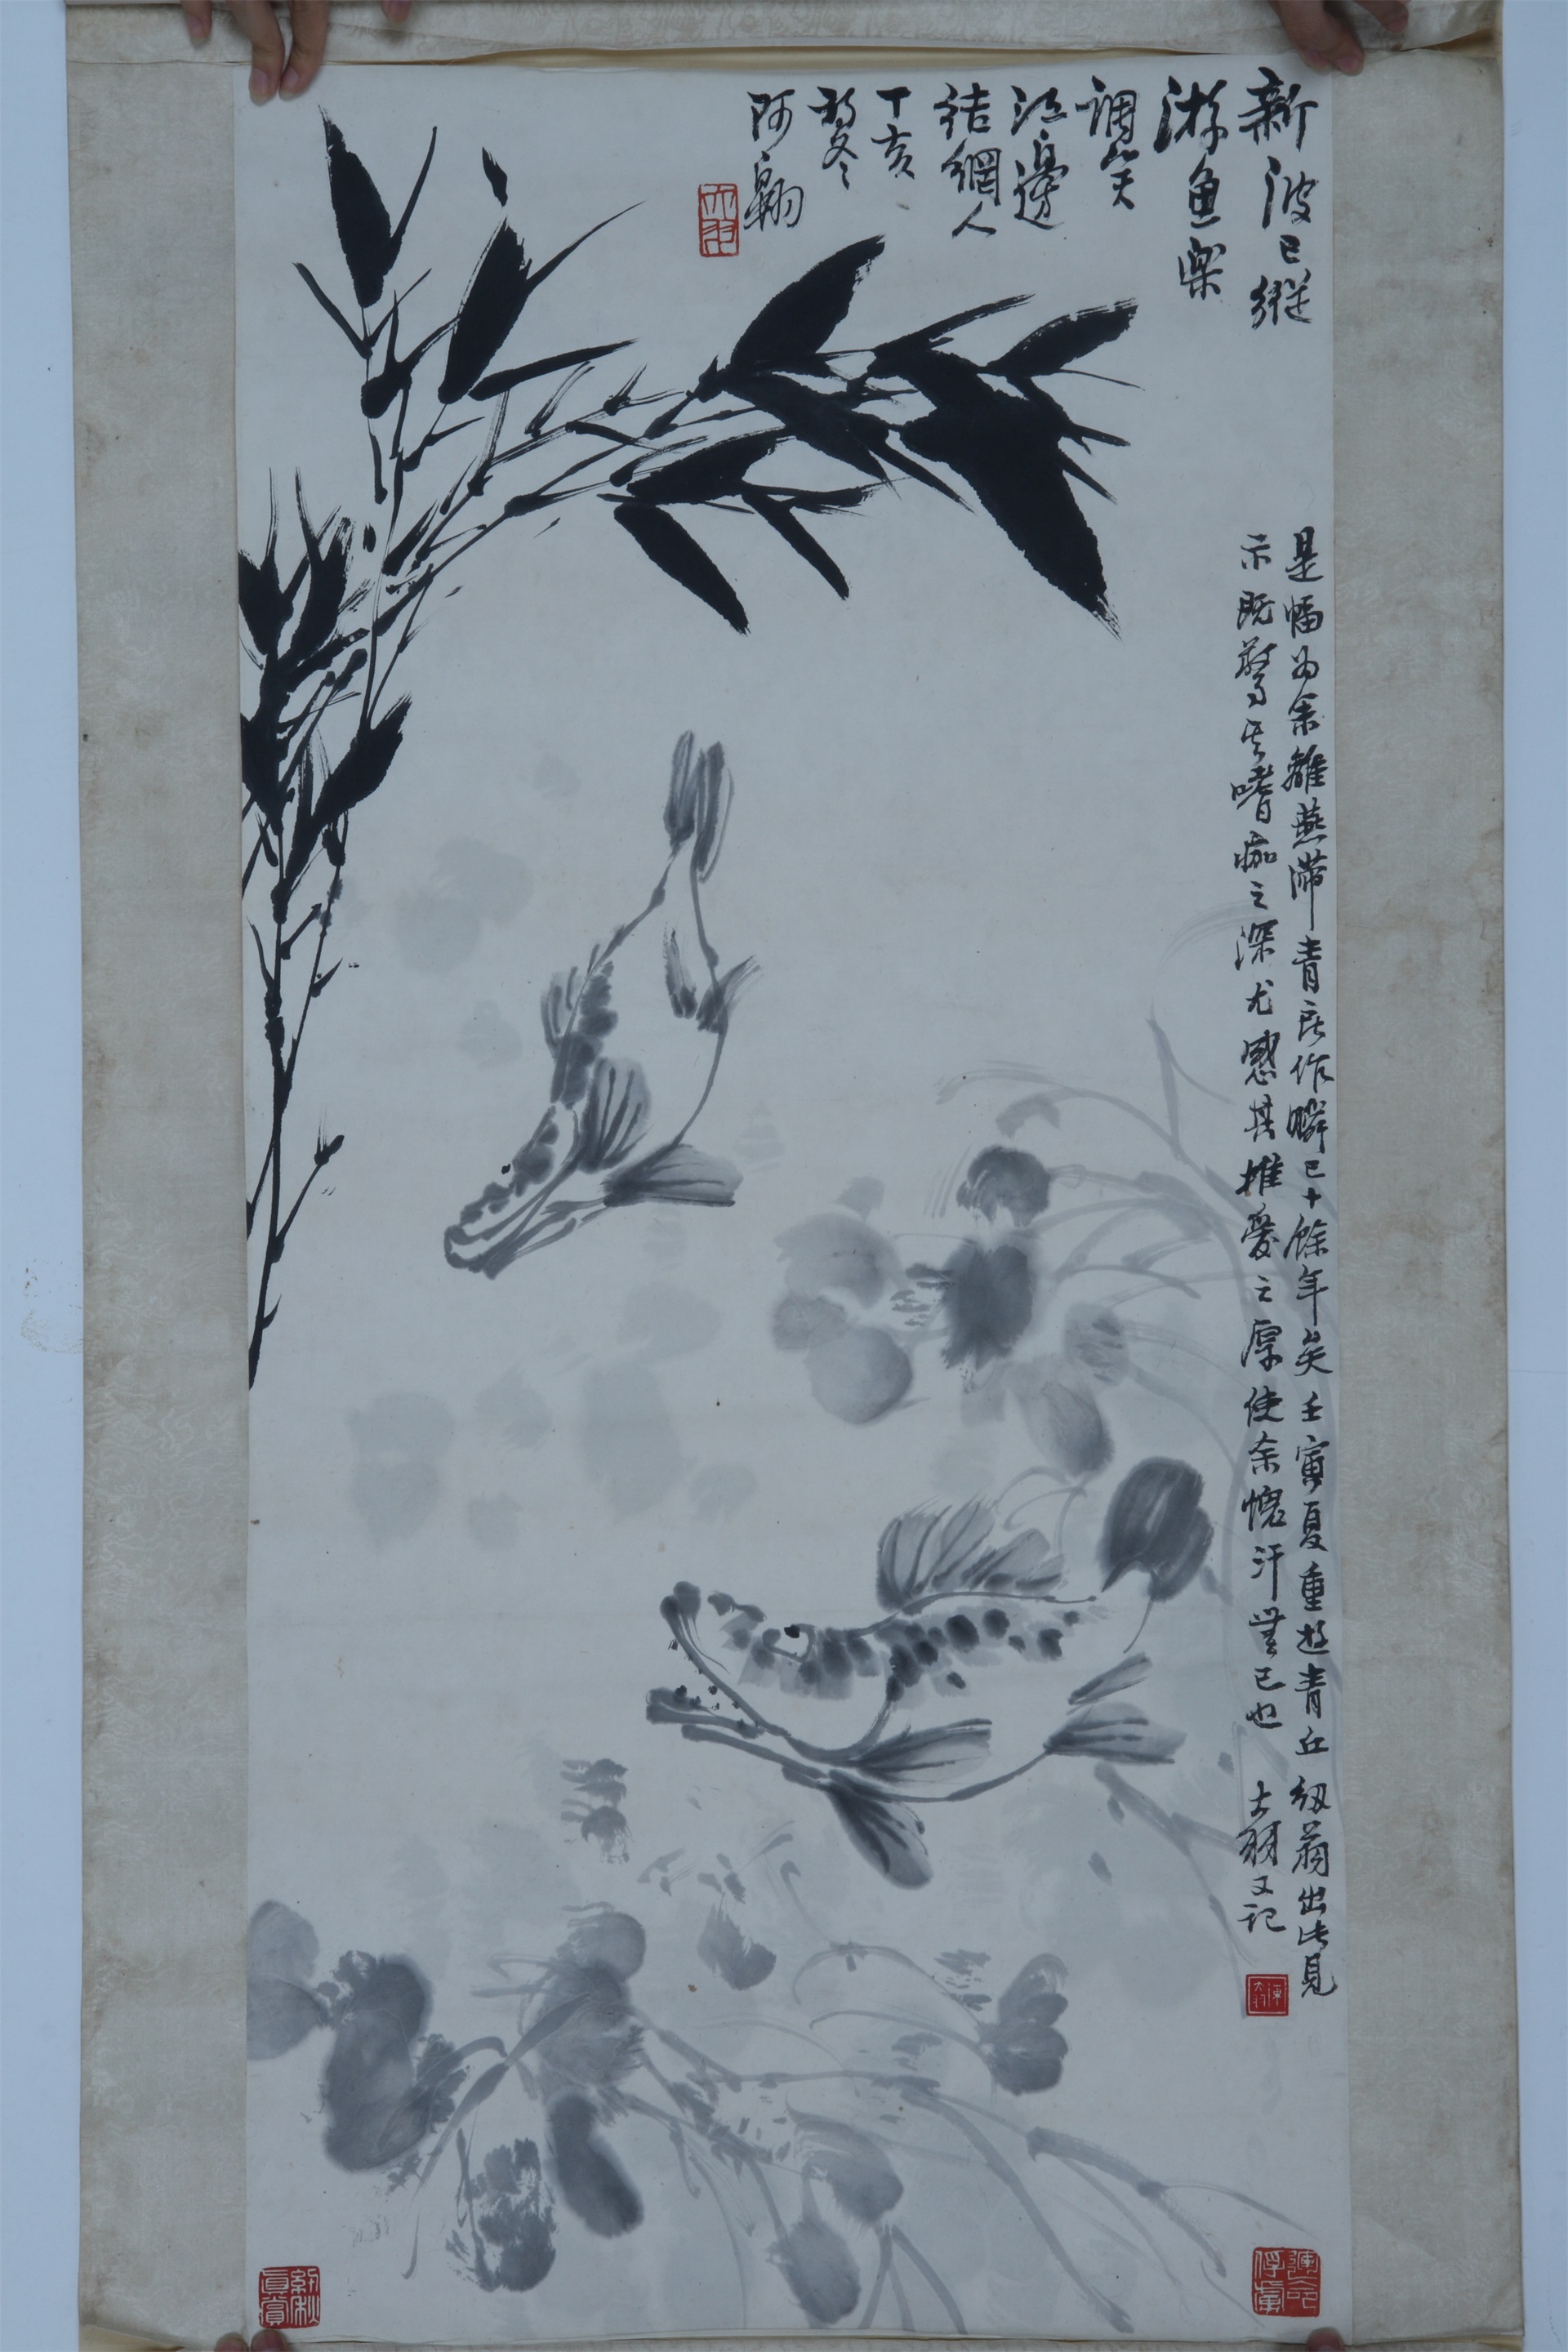 新波已縱
游魚樂
調笑
江邊
結網人
丁亥
初冬
阿翱
是幅為余離燕滯青島作瞬已十餘年矣壬寅夏重遊青丘紉蒭出此見
示既驚其嗜痂之深尤感其推愛之厚使余愧汗無已也 大羽又記
大羽
紉秋
真賞